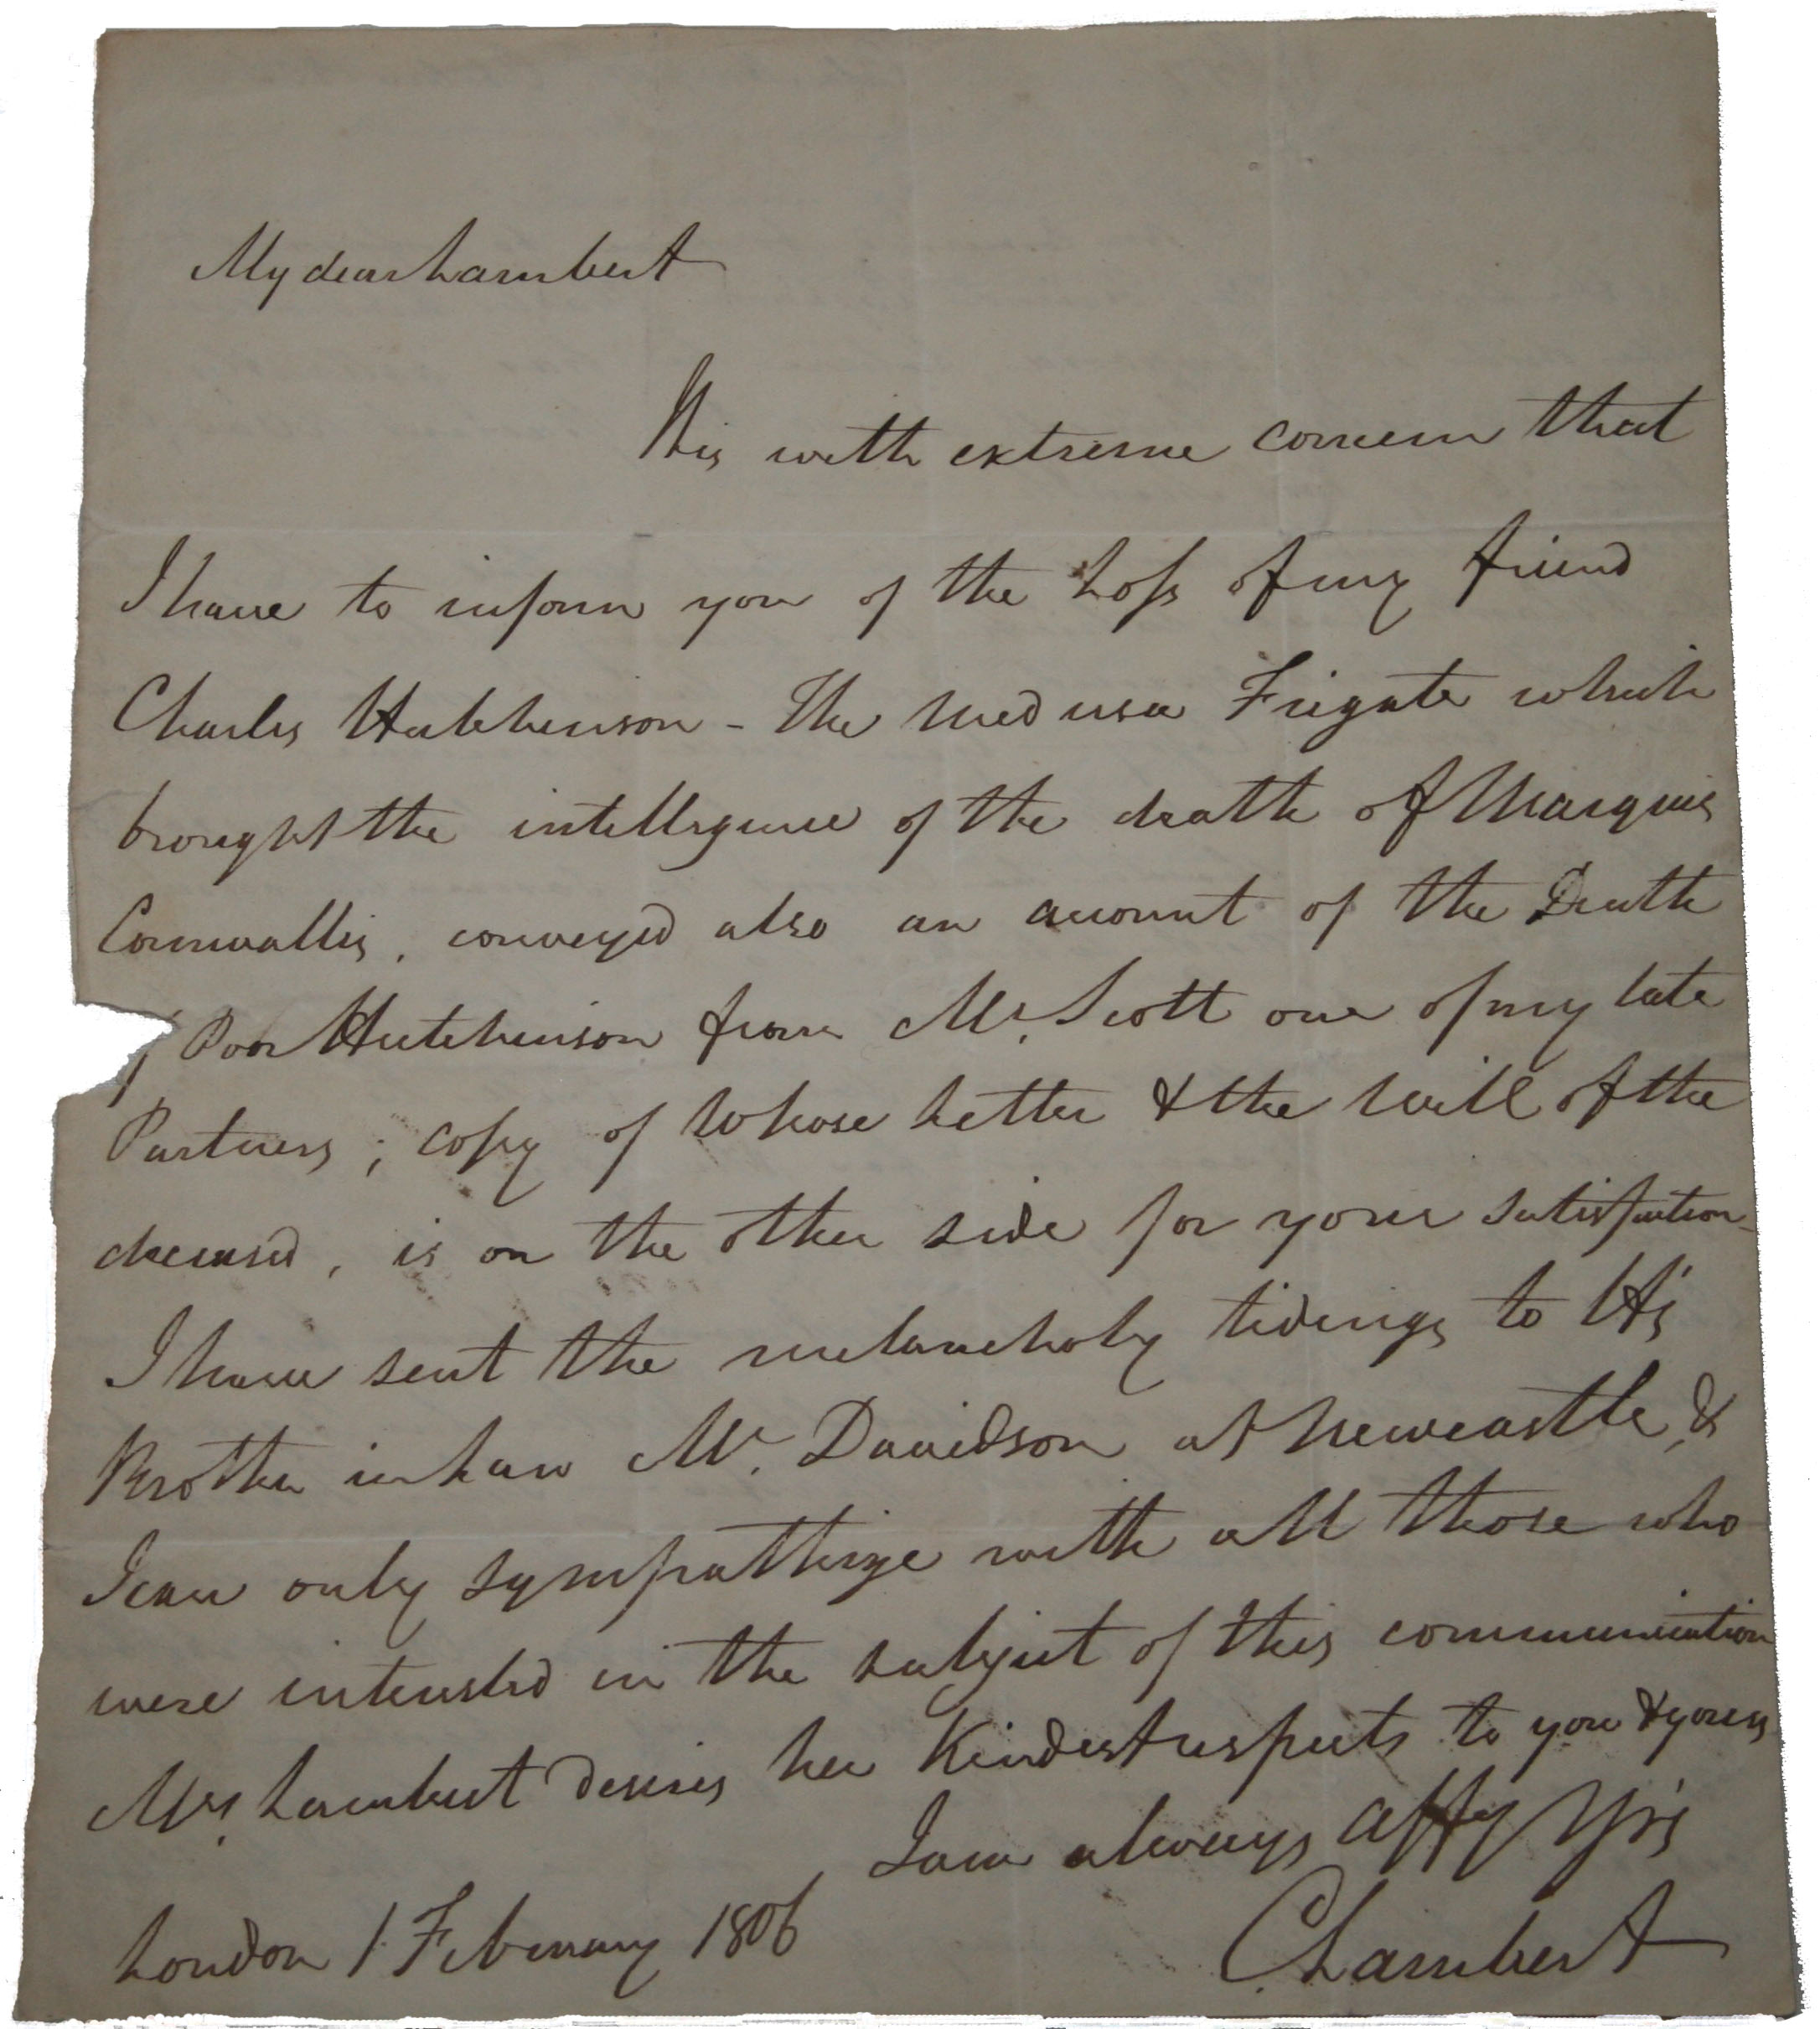 My dear Lambert
It is with extreme concern that
I have to inform you of the Loss of my friend
Charles Hutchinson - The Medusa Frigate which
brought the intelligence of the death of Marquis
Cornwallis, conveyed also an account of the Death
of Poor Hutchinson from Mr. Scott one of my late
Partners; copy of whose Letter & the Will of the
deceased, is on the other side for your satisfaction_
I have sent the melancholy tidings to H's
Brother in Law Mr. Davidson at Newcastle, &
I can only sympathize with all those who
were interested in the subject of this communication
Mrs. Lambert desires her Kindest respects to you & yours
I am always Affy Yrs
London 1 February 1806
CLambert